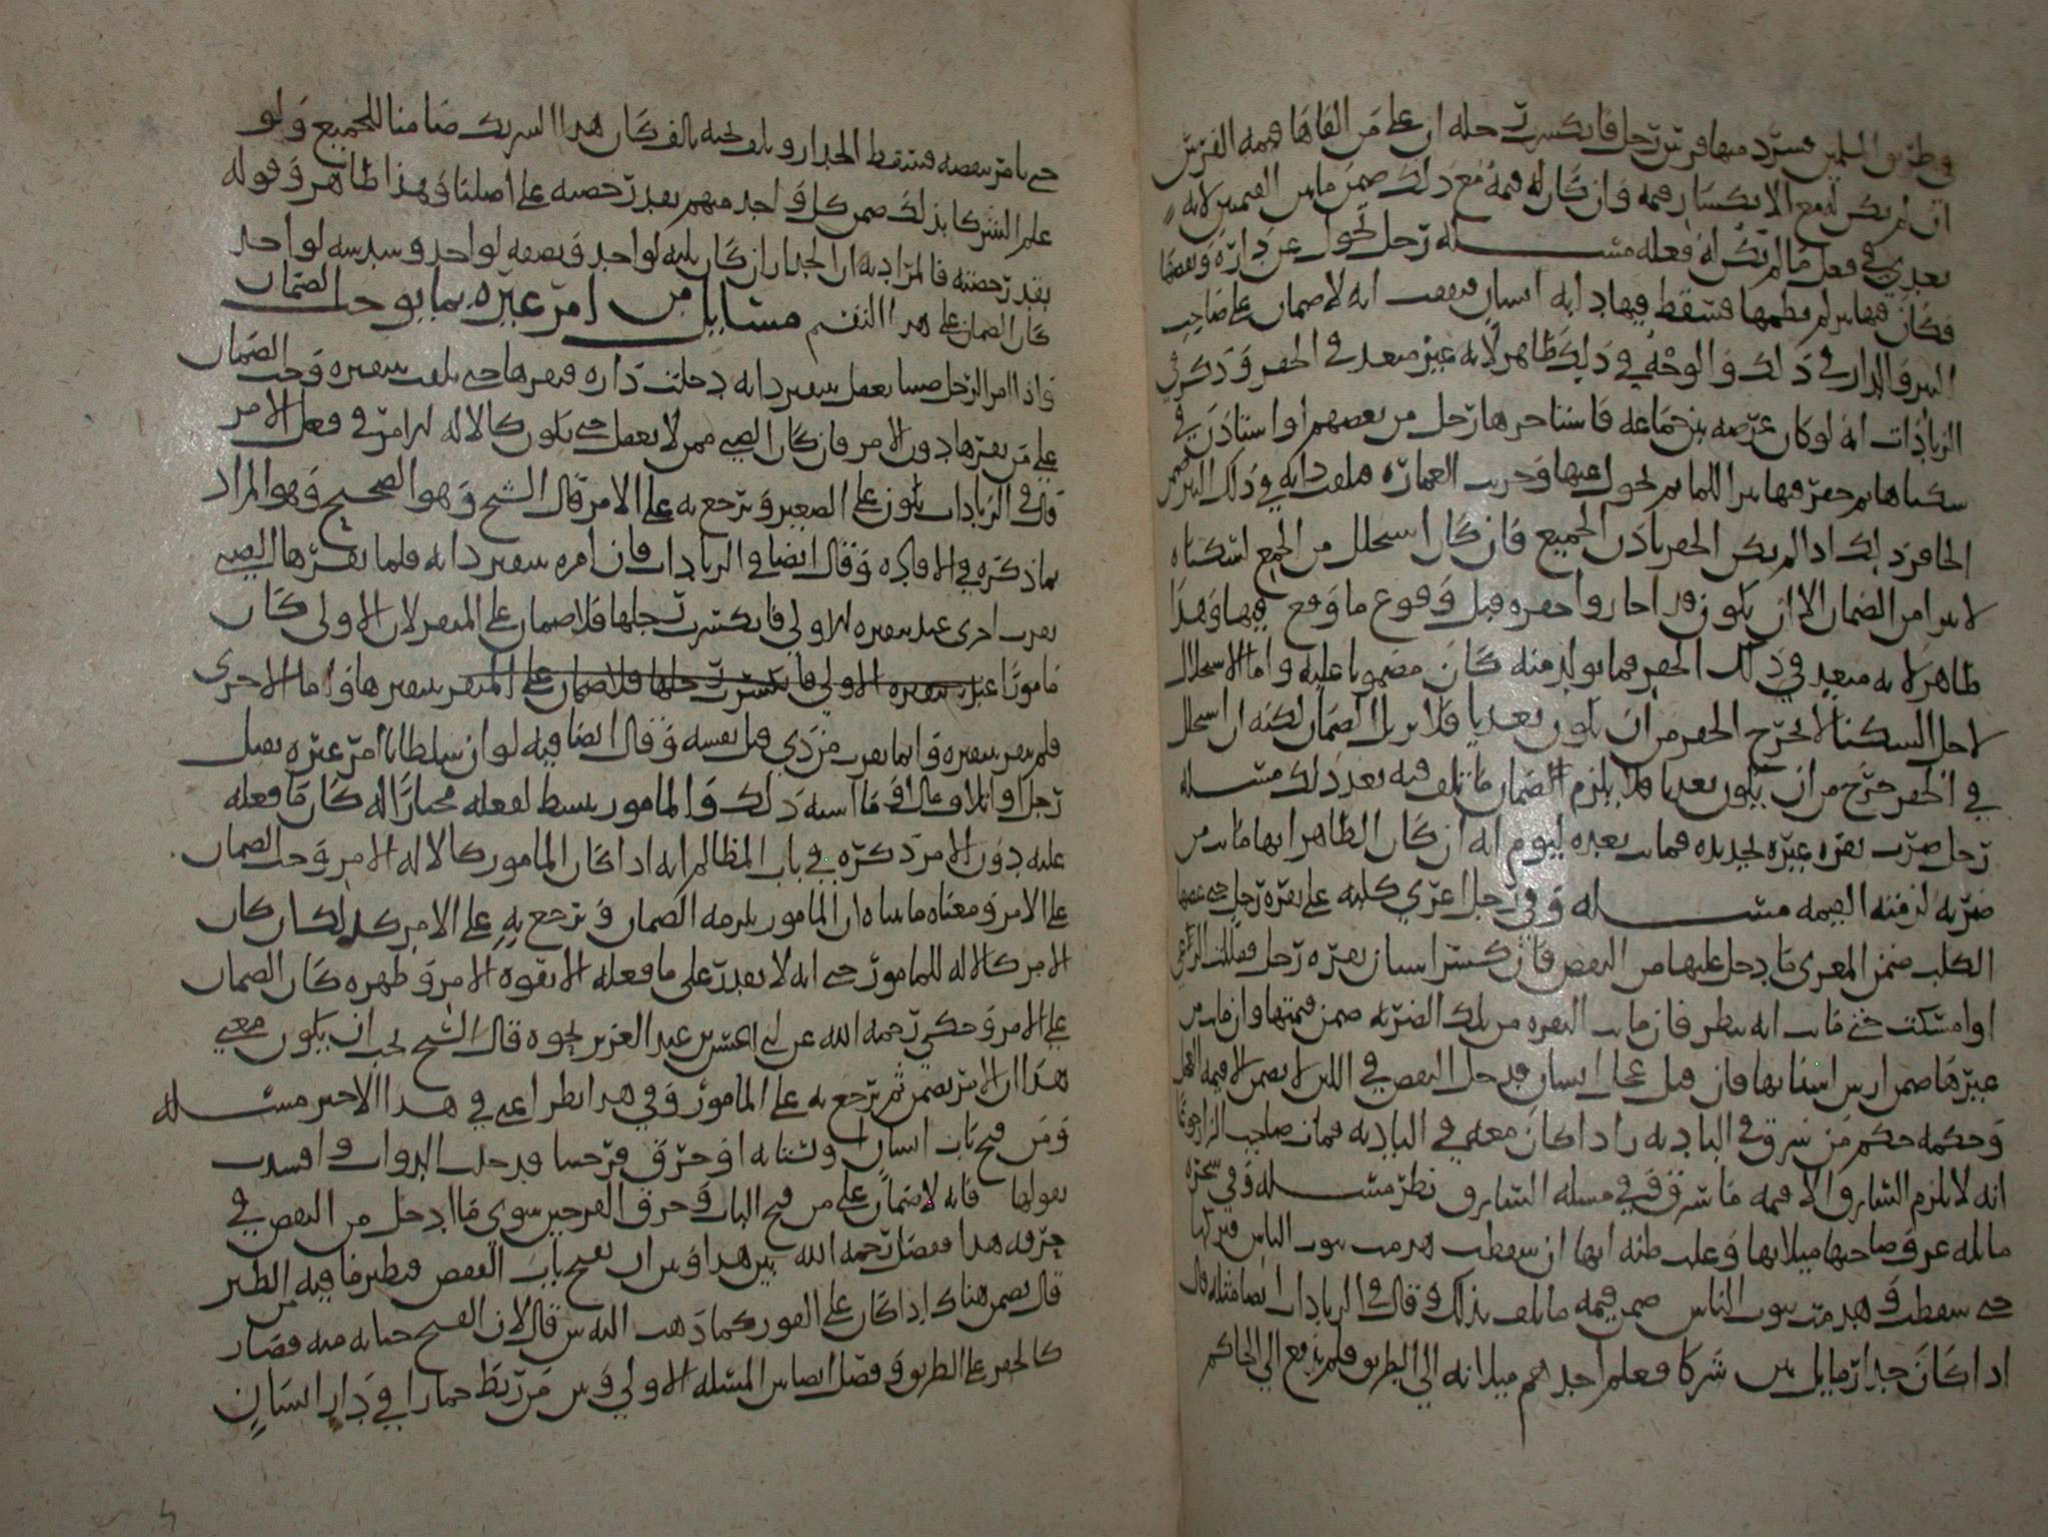 في طريق المسلمين فشرد منها فرس رجل فانكسرت رجله ان على من القاها قيمة الفرس
ان لم يكن له مع الانكسار قيمة وان كان له قيمة مع ذلك ضمن ما بين القيمتين لانه
تعدى في فعل ما لم يكن له فعله مسئلة رجل تحول عن داره وبعضها
فكان فيها بير لم يطمها فسقط فيها دابة انسان فنفقت انه لا ضمان على صاحب
البير والدار في ذلك والوجه في ذلك ظاهر لانه غير متعد في الحفر وذكر في
الزيادات انه لو كان عرصة بين جماعة فاستاجرها رجل من بعضهم او استاذن في
سكناها ثم حفر فيها بيرا للما ثم تحول عنها وخربت العمارة فتلفت دابة في ذلك البير ضمن
الحافر ذلك اذا لم يكن الحفر باذن الجميع فان كان استحلل من الجميع لسكناه
لا يبرا من الضمان الا ان يكون قد اجازوا حفره قبل وقوع ما وقع فيها وهذا
ظاهر لانه متعدي في ذلك الحفر فما تولد منه كان مضمونا عليه واما الاستحلال
لاجل السكنا لا يخرج الحفر من ان يكون تعديا فلا يزيل الضمان لكنه ان استحل
في الحفر خرج من ان يكون تعديا فلا يلزم الضمان ما تلف فيه بعد ذلك مسئلة
رجل ضرب بقرة غيره بحديدة فماتت بعده ليوم انه ان كان الظاهر انها ماتت من
ضربه لزمته القيمة مسئلة وفي رجل اغرى كلبه على بقرة رجل حتى عضها
الكلب ضمن المغري ما دخل عليها من النقص فان كسر انسان بقرة رجل
او امسكت حتى ماتت انه ينظر فان ماتت البقرة من تلك الضربة ضمن قيمتها وان ماتت من
غيرها ضمن ارش اسنانها فان قتل عجل انسان فدخل النقص في اللبن لا يضمن الا قيمة العجل
وحكمه حكم من سرق في البادية زادا كان معه في البادية فمات صاحب الزاد جوعا
انه لا يلزم السارق الا قيمة ما سرق وفي مسئلة السارق نظر مسئلة وفي شجرة
مائلة عرف صاحبها ميلانها وغلب ظنه انها ان سقطت هدمت بيوت الناس فتركها
حتى سقطت وهدمت بيوت الناس ضمن قيمة ما تلف بذلك وقال في الزيادات ايضا مثله قال
اذا كان جدار مايل بين شركا فعلم احدهم ميلانه الى الطريق فلم يرفع الى الحاكم
حتى يامر بنقضه فسقط الجدار وتلف تحته تالف كان هذا الشريك ضامنا للجميع ولو
علم الشركا بذلك ضمن كل واحد منهم بقدر حصته على اصلنا وهذا ظاهر وقوله
بقدر حصته فالمراد به ان الجدار ان كان ثلثه لواحد ونصفه لواحد وسدسه لواحد
كان الضمان على هذا التقسيم مسايل من امر غيره بما يوجب الضمان
واذا امر الرجل صبيا يعقل بتنفير دابة دخلت داره فنفرها حتى تلفت بتنفيره وجب الضمان
على من نفرها دون الامر فان كان الصبي ممن لا يعقل حتى يكون كالالة لزامر في فعل الامر
قال في الزيادات يكون على الصغير ويرجع به على الامر قال الشيخ وهو الصحيح وهو المراد
بما ذكره في الافادة وقال ايضا في الزيادات فان امره بتنفير دابة فلما نفرها الصبي
نفرت اخرى عند تنفيره للاولى فانكسرت رجلها فلا ضمان على المنفر لان الاولى كان
مامورا عند تنفيره الاولى فانكسرت رجلها فلا ضمان على المنفر بتنفيرها واما الاخرى
فلم تنفر بتنفيره وانما نفرت من ذي قبل نفسه وقال ايضا فيه لو ان سلطانا امر غيره بقتل
رجل او اتلاف مال او ما اشبه ذلك والمامور ينبسط لفعله مختارا له كان ما فعله
عليه دون الامر وذكره في باب المظالم انه اذا كان المامور كالالة للامر وجب الضمان
على الامر ومعناه ما بيناه ان المامور يلزمه الضمان ويرجع به على الامر كذلك ان كان
الامر كالالة للمامور حتى انه لا يقدر على ما فعله الا بقوة الامر وظهره كان الضمان
على الامر وحكي رحمه الله عن بن عبد العزيز نحوه قال الشيخ يجب ان يكون معنى
هذا ان الامر يضمن ثم يرجع به على المامور وفي هذا نظر اعني في هذا الاخير مسئلة
ومن فتح باب انسان او خرق فرجسا فدخلت الدواب وافسدت
بقولها فانه لا ضمان على من فتح الباب وخرق الفرجين سوى ما ادخل من النقص في
خرقه هذا ففصل رحمه الله بين هذا وبين ان يفتح باب القفص فيطير ما فيه من الطير
قال يضمن هناك اذا كان على الفور كما ذهب اليه ش قال لان الفتح جناية منه فصار
كالحفر على الطريق وفصل ايضا بين المسئلة الاولى وبين من ربط حمارا في دار انسان